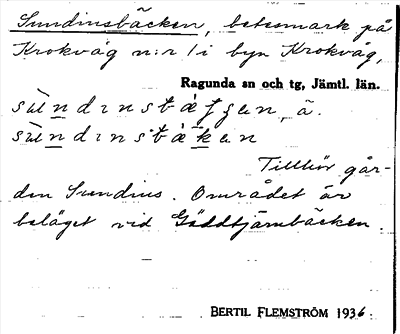 Sundinsbäcken, betesmark på
Krokvåg n:r 1 i byn Krokvåg,
Ragunda sn och tg, Jämtl. län.
Tillhör går-
den Sundins. Området är
beläget vid Gäddtjärnbäcken.
BERTIL FLEMSTRÖM 1936.